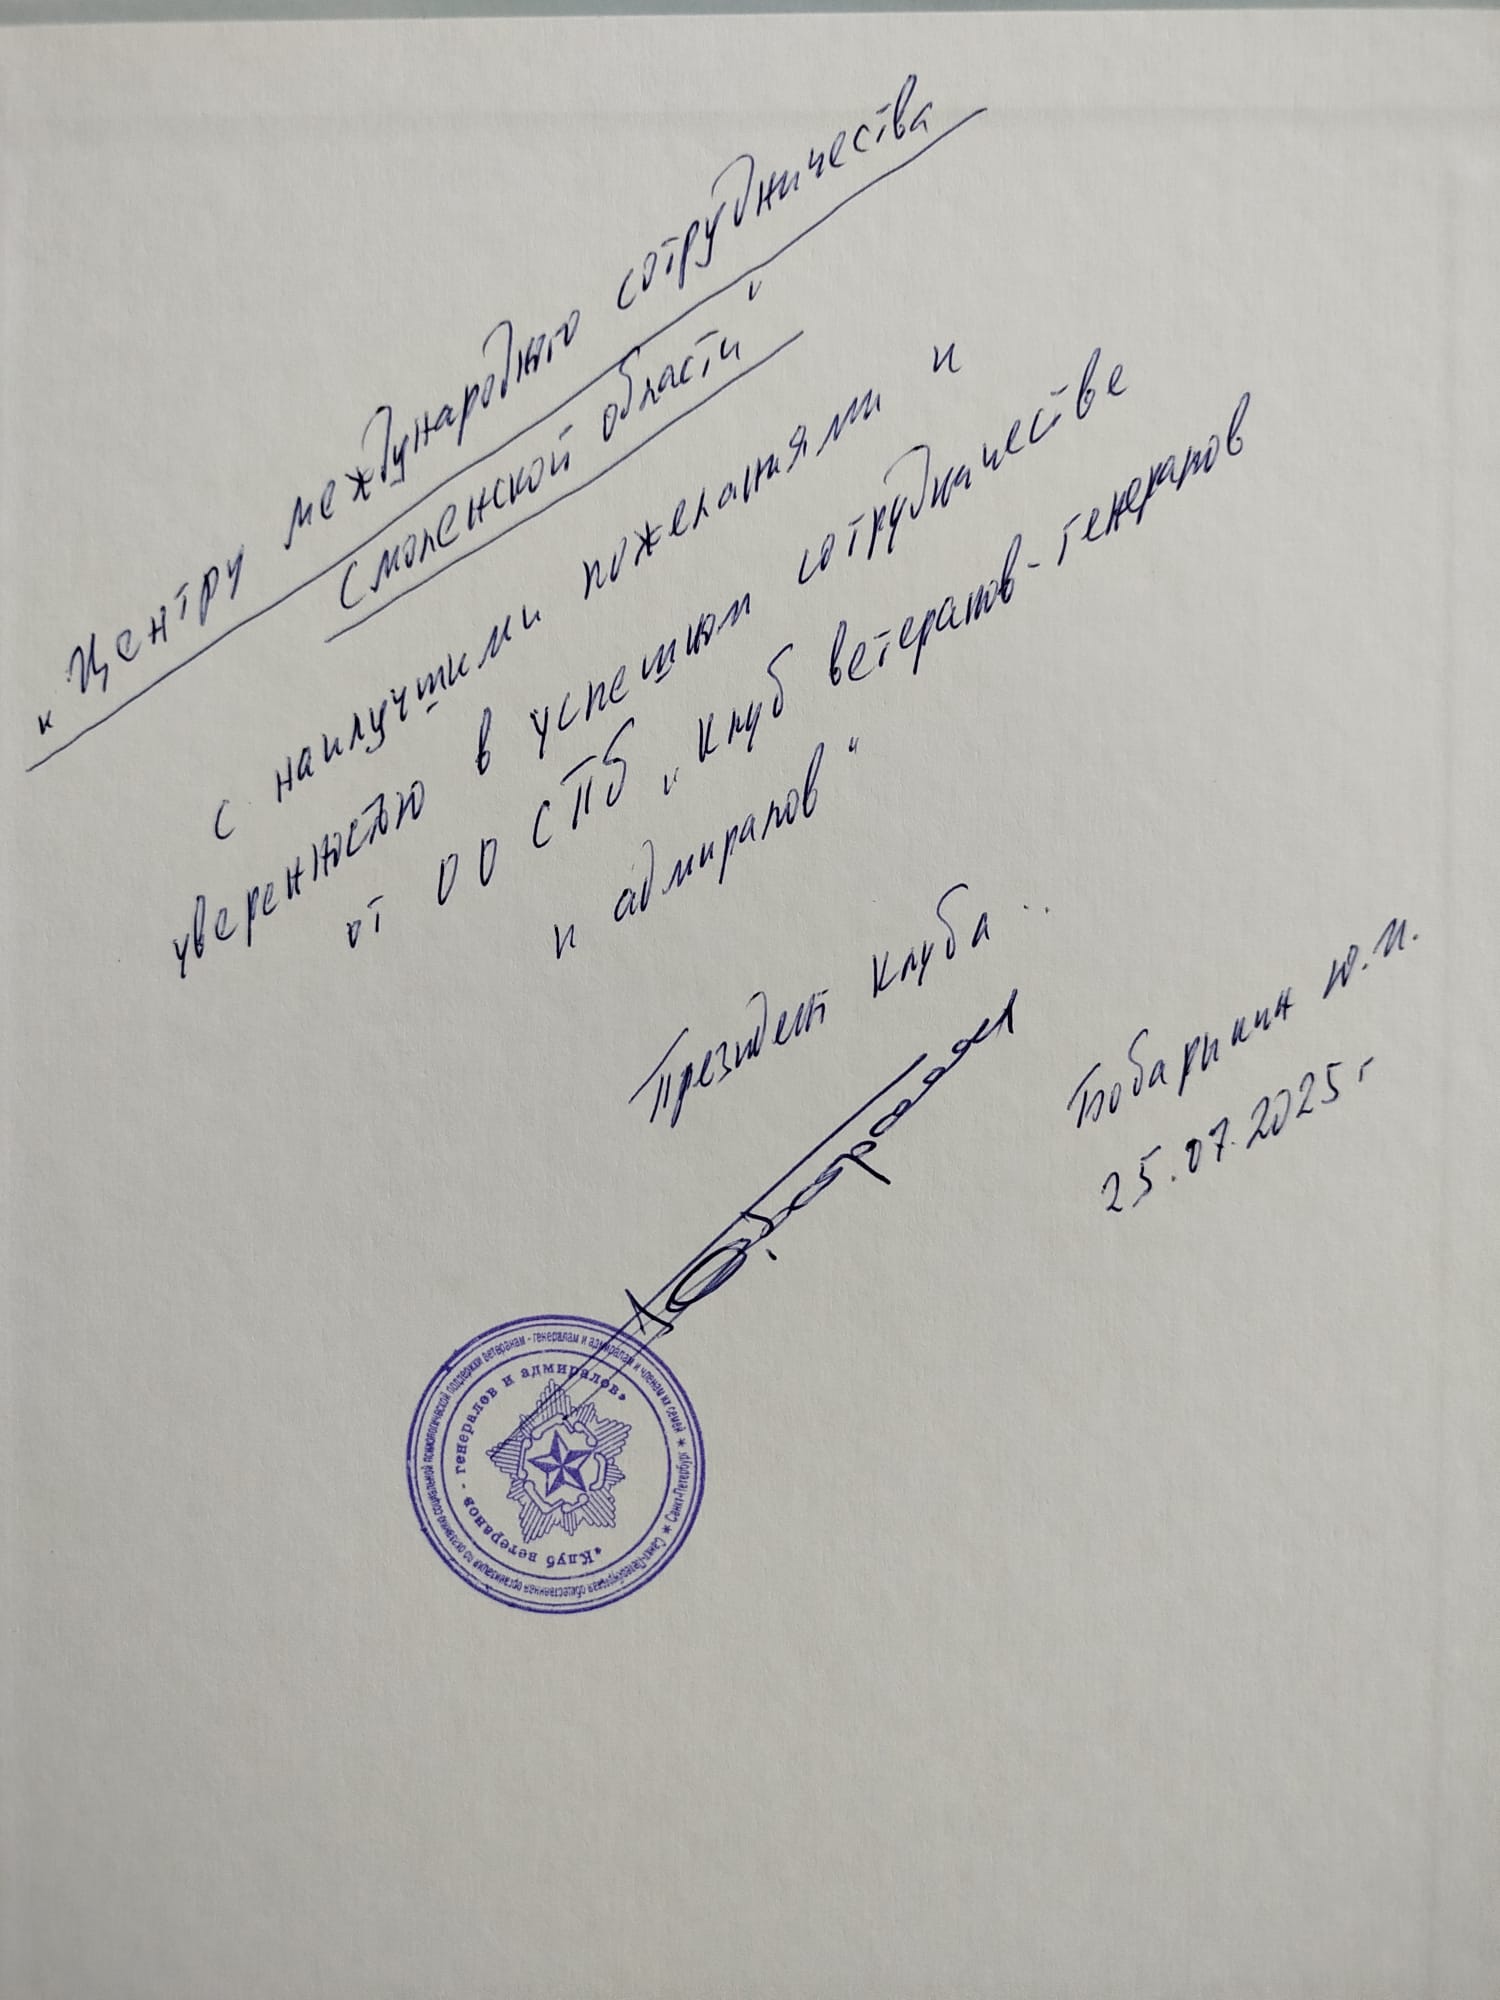 "Центру международного сотрудничества
Смоленской области"
с наилучшими пожеланиями и
уверенностью в успешном сотрудничестве
от ОО СПб "Клуб ветеранов-генералов
и адмиралов"
Президент Клуба
Бобарыкин Ю.И.
25.07.2025 г
Санкт-Петербургская общественная организация по оказанию социальной психологической поддержки ветеранам - генералам и адмиралам и членам их семей * Санкт-Петербург *
«Клуб ветеранов - генералов и адмиралов»